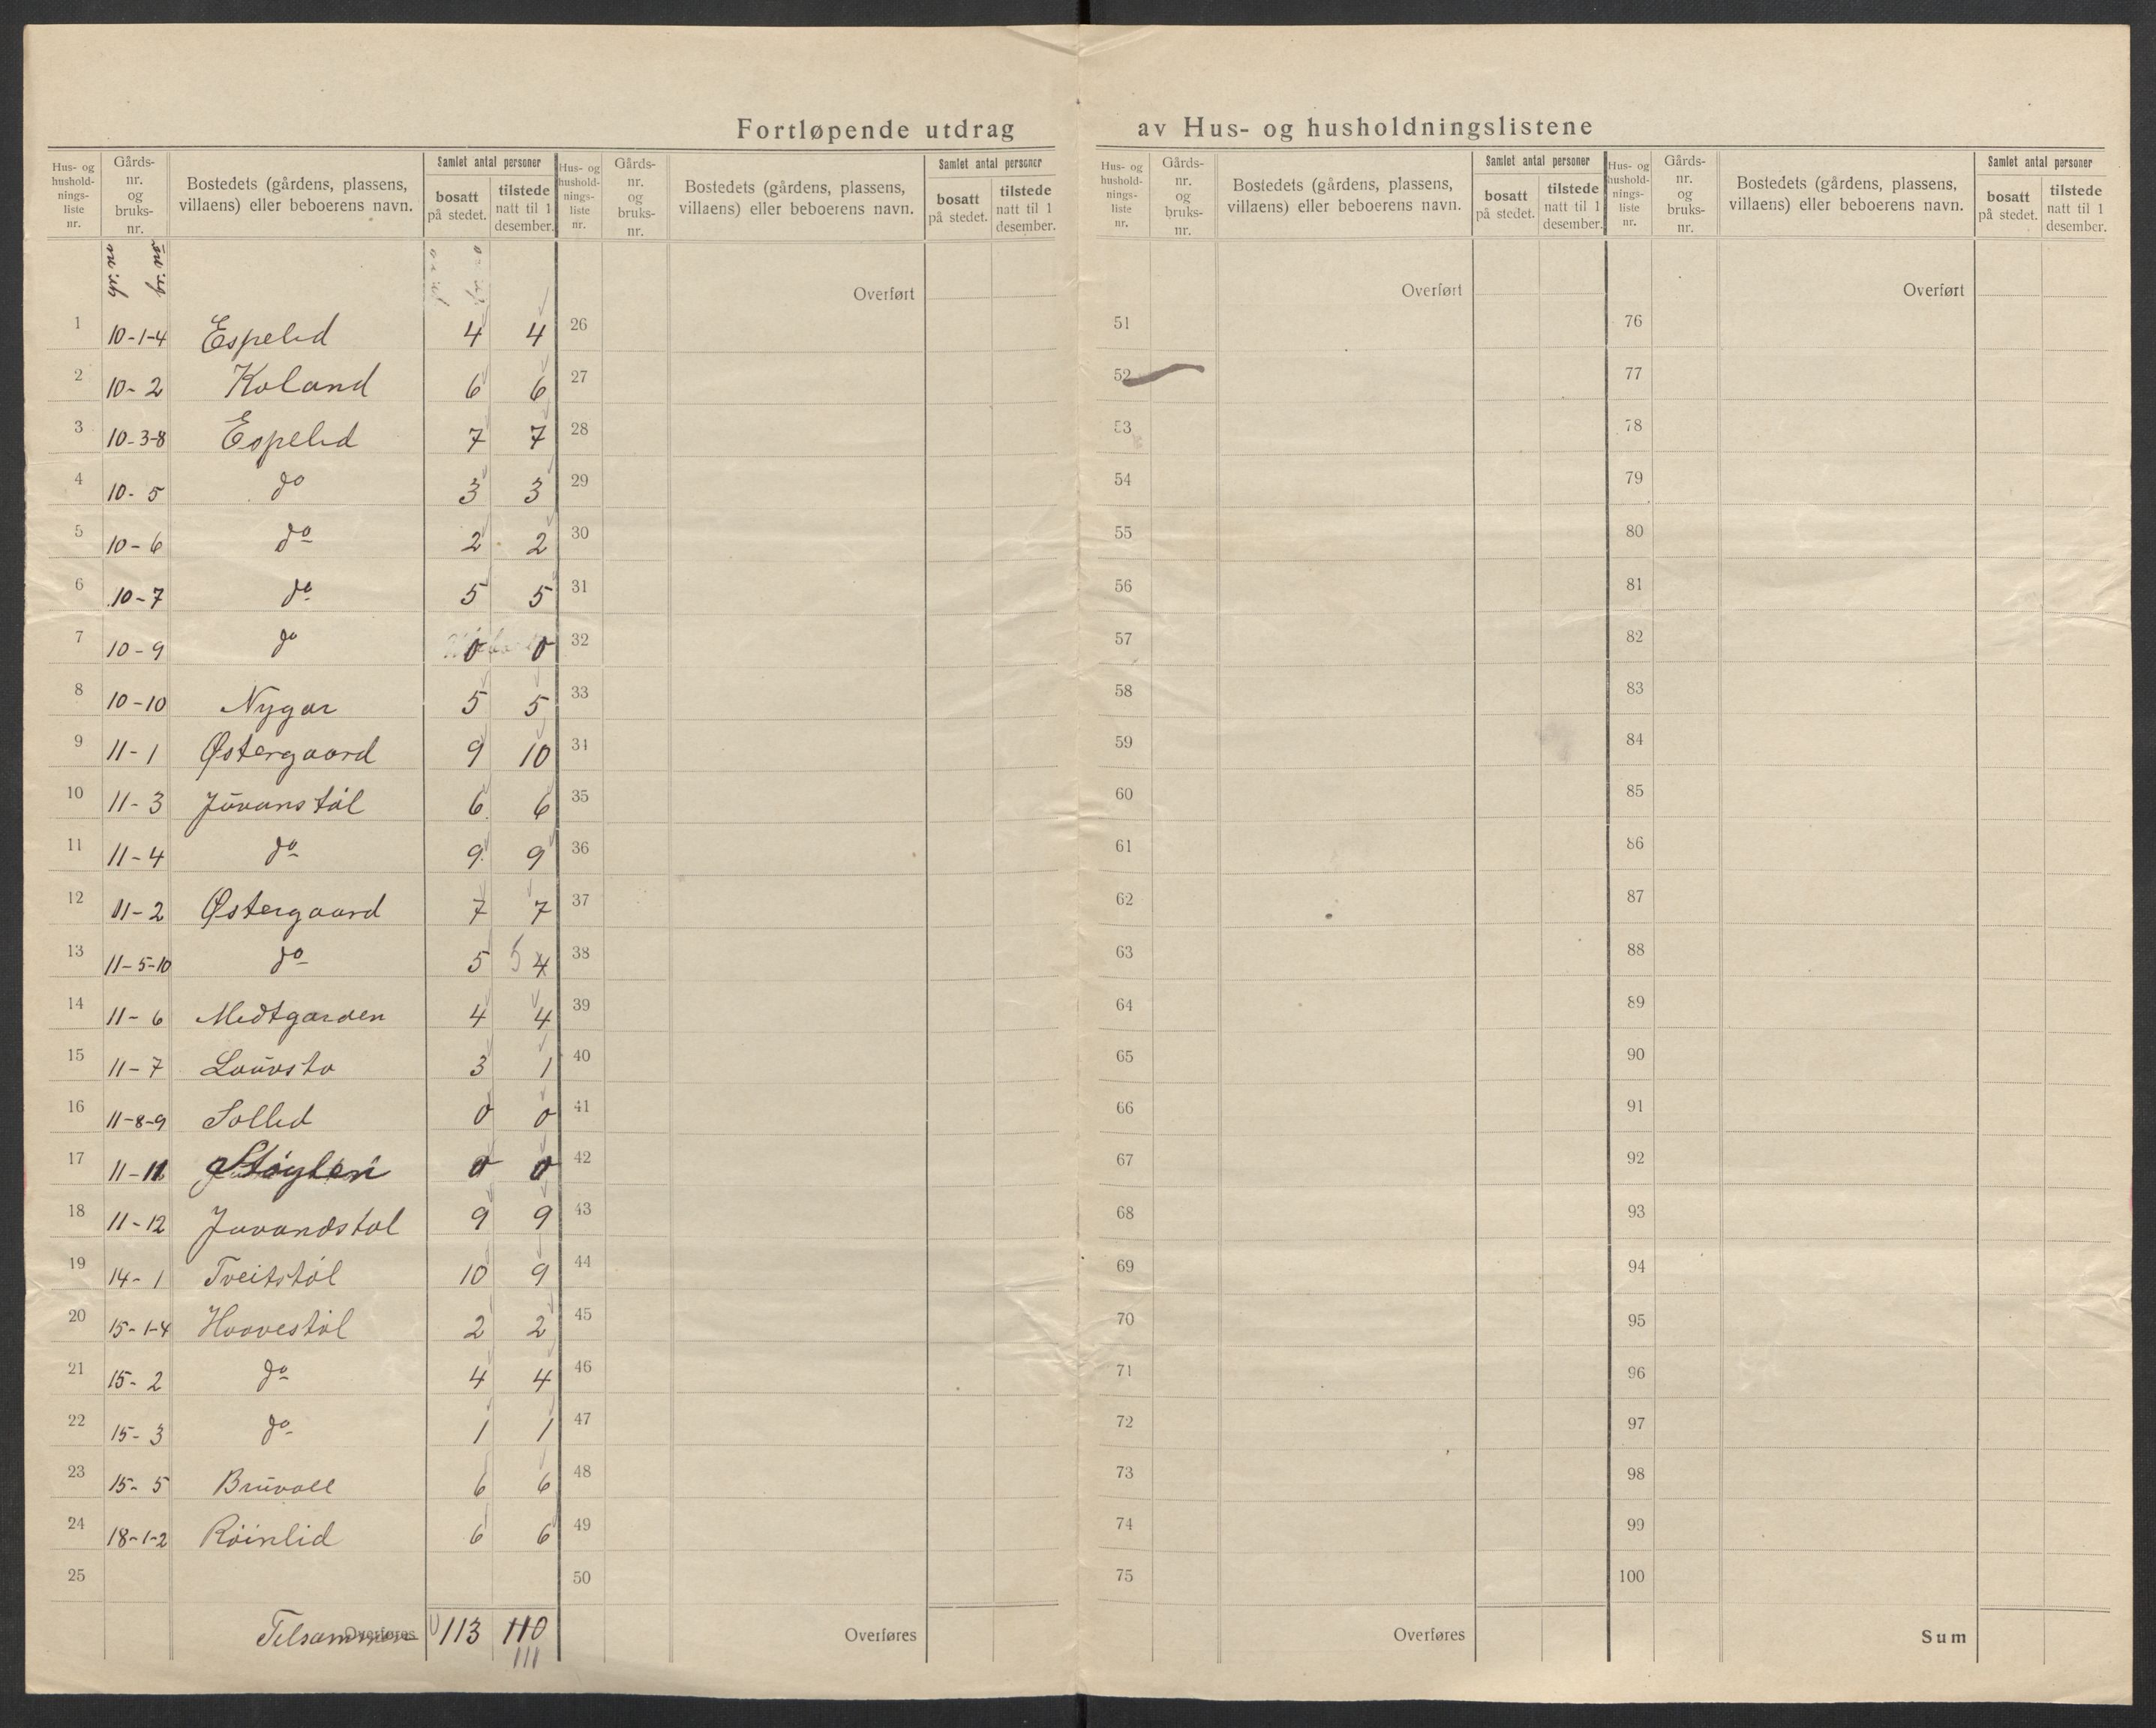 Fortløpende utdrag av Hus- og husholdningslistene
Hus- og hushold-nings-liste nr. Gårds-nr. og bruks-nr. Bostedets (gårdens, plassens, villaens) eller beboerens navn. Samlet antal personer bosatt på stedet. tilstede natt til 1 desember.
Hus- og hushold-nings-liste nr. Gårds-nr. og bruks-nr. Bostedets (gårdens, plassens, villaens) eller beboerens navn. Samlet antal personer bosatt på stedet. tilstede natt til 1 desember.
Hus- og hushold-nings-liste nr. Gårds-nr. og bruks-nr. Bostedets (gårdens, plassens, villaens) eller beboerens navn. Samlet antal personer bosatt på stedet. tilstede natt til 1 desember.
Hus- og hushold-nings-liste nr. Gårds-nr. og bruks-nr. Bostedets (gårdens, plassens, villaens) eller beboerens navn. Samlet antal personer bosatt på stedet. tilstede natt til 1 desember.
gr. no br. no Overført Overført Overført
1 10-1-4 Espelid 4 4 26 51 76
2 10-2 Koland 6 6 27 52 77
3 10-3-8 Espelid 7 7 28 53 78
4 10-5 do 3 3 29 54 79
5 10-6 do 2 2 30 55 80
6 10-7 do 5 5 31 56 81
7 10-9 do 0 0 32 57 82
8 10-10 Nygar 5 5 33 58 83
9 11-1 Østergaard 9 10 34 59 84
10 11-3 Jūvanstøl 6 6 35 60 85
11 11-4 do 9 9 36 61 86
12 11-2 Østergaard 7 7 37 62 87
13 11-5-10 do 5 5 4 38 63 88
14 11-6 Medtgarden 4 4 39 64 89
15 11-7 Laūvsta 3 1 40 65 90
16 11-8-9 Sollid 0 0 41 66 91
17 11-11 0 0 42 67 92
18 11-12 Juvandstøl 9 9 43 68 93
19 14-1 Tveitstøl 10 9 44 69 94
20 15-1-4 Haavestøl 2 2 45 70 95
21 15-2 do 4 4 46 71 96
22 15-3 do 1 1 47 72 97
23 15-5 Brūvoll 6 6 48 73 98
24 18-1-2 Røinlid 6 6 49 74 99
25 50 75 100
Tilsammen Overføres 113 110 Overføres Overføres Sum
111